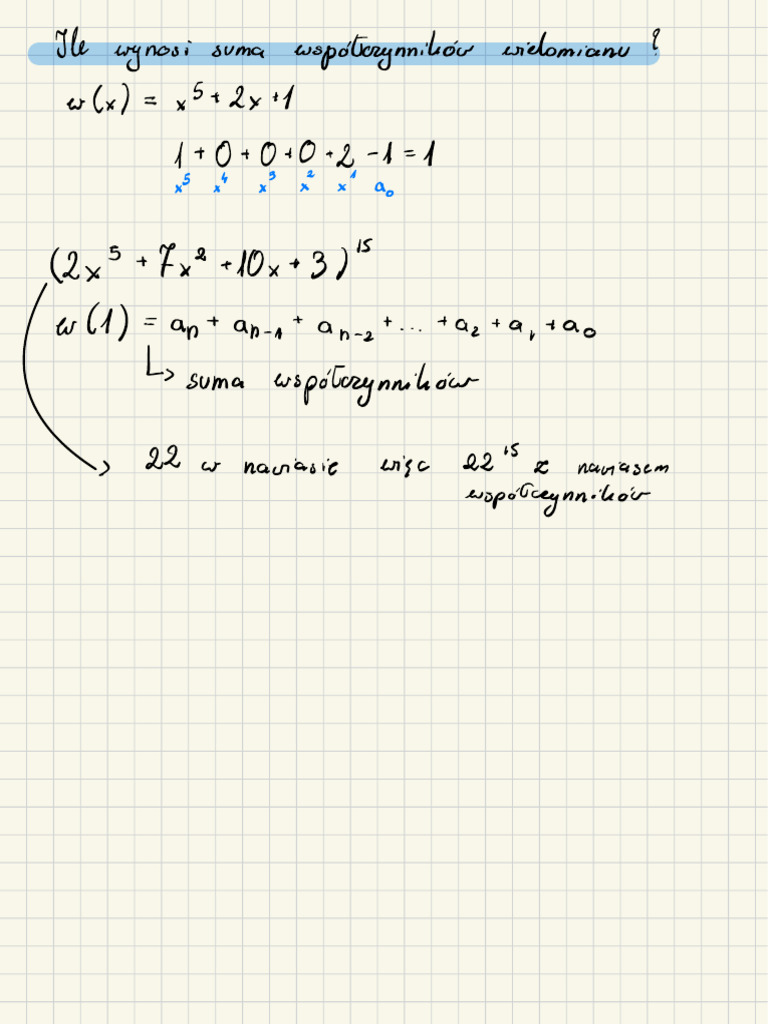 Ile wynosi suma współczynników wielomianu?
w(x) = x⁵ + 2x + 1
1 + 0 + 0 + 0 + 2 - 1 = 1
x⁵ x⁴ x³ x² x¹ a₀
(2x⁵ + 7x² + 10x + 3)¹⁵
w(1) = aₙ + aₙ₋₁ + aₙ₋₂ + ... + a₂ + a₁ + a₀
↳ suma współczynników
→ 22 w nawiasie więc 22¹⁵ z nawiasem
współczynników